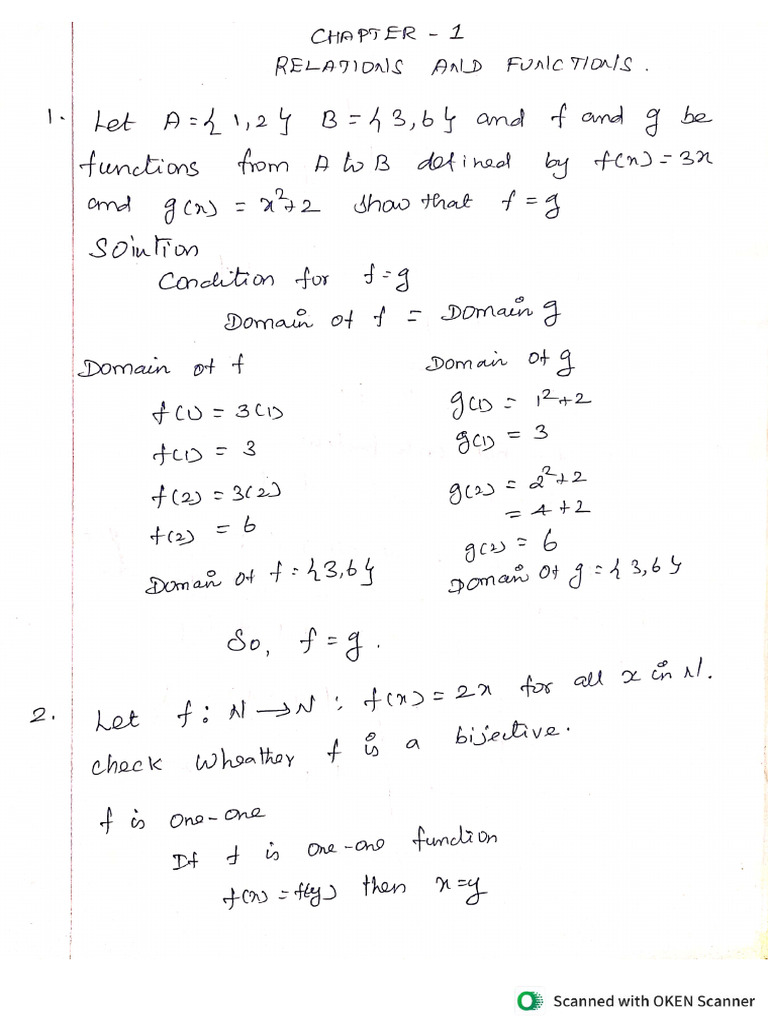 CHAPTER - 1
RELATIONS AND FUNCTIONS.
1. Let A = { 1, 2 } B = { 3, 6 } and f and g be
functions from A to B defined by f(x) = 3x
and g(x) = x²+2 show that f = g
Solution
Condition for f = g
Domain of f = Domain g
Domain of f
f(1) = 3(1)
f(1) = 3
f(2) = 3(2)
f(2) = 6
Domain of f = {3,6}
Domain of g
g(1) = 1²+2
g(1) = 3
g(2) = 2²+2
= 4+2
g(2) = 6
Domain of g = { 3,6 }
So, f = g.
2. Let f : N → N : f(x) = 2x for all x in N.
check wheather f is a bijective.
f is one-one
If f is one-one function
f(x) = f(y) then x = y
Scanned with OKEN Scanner